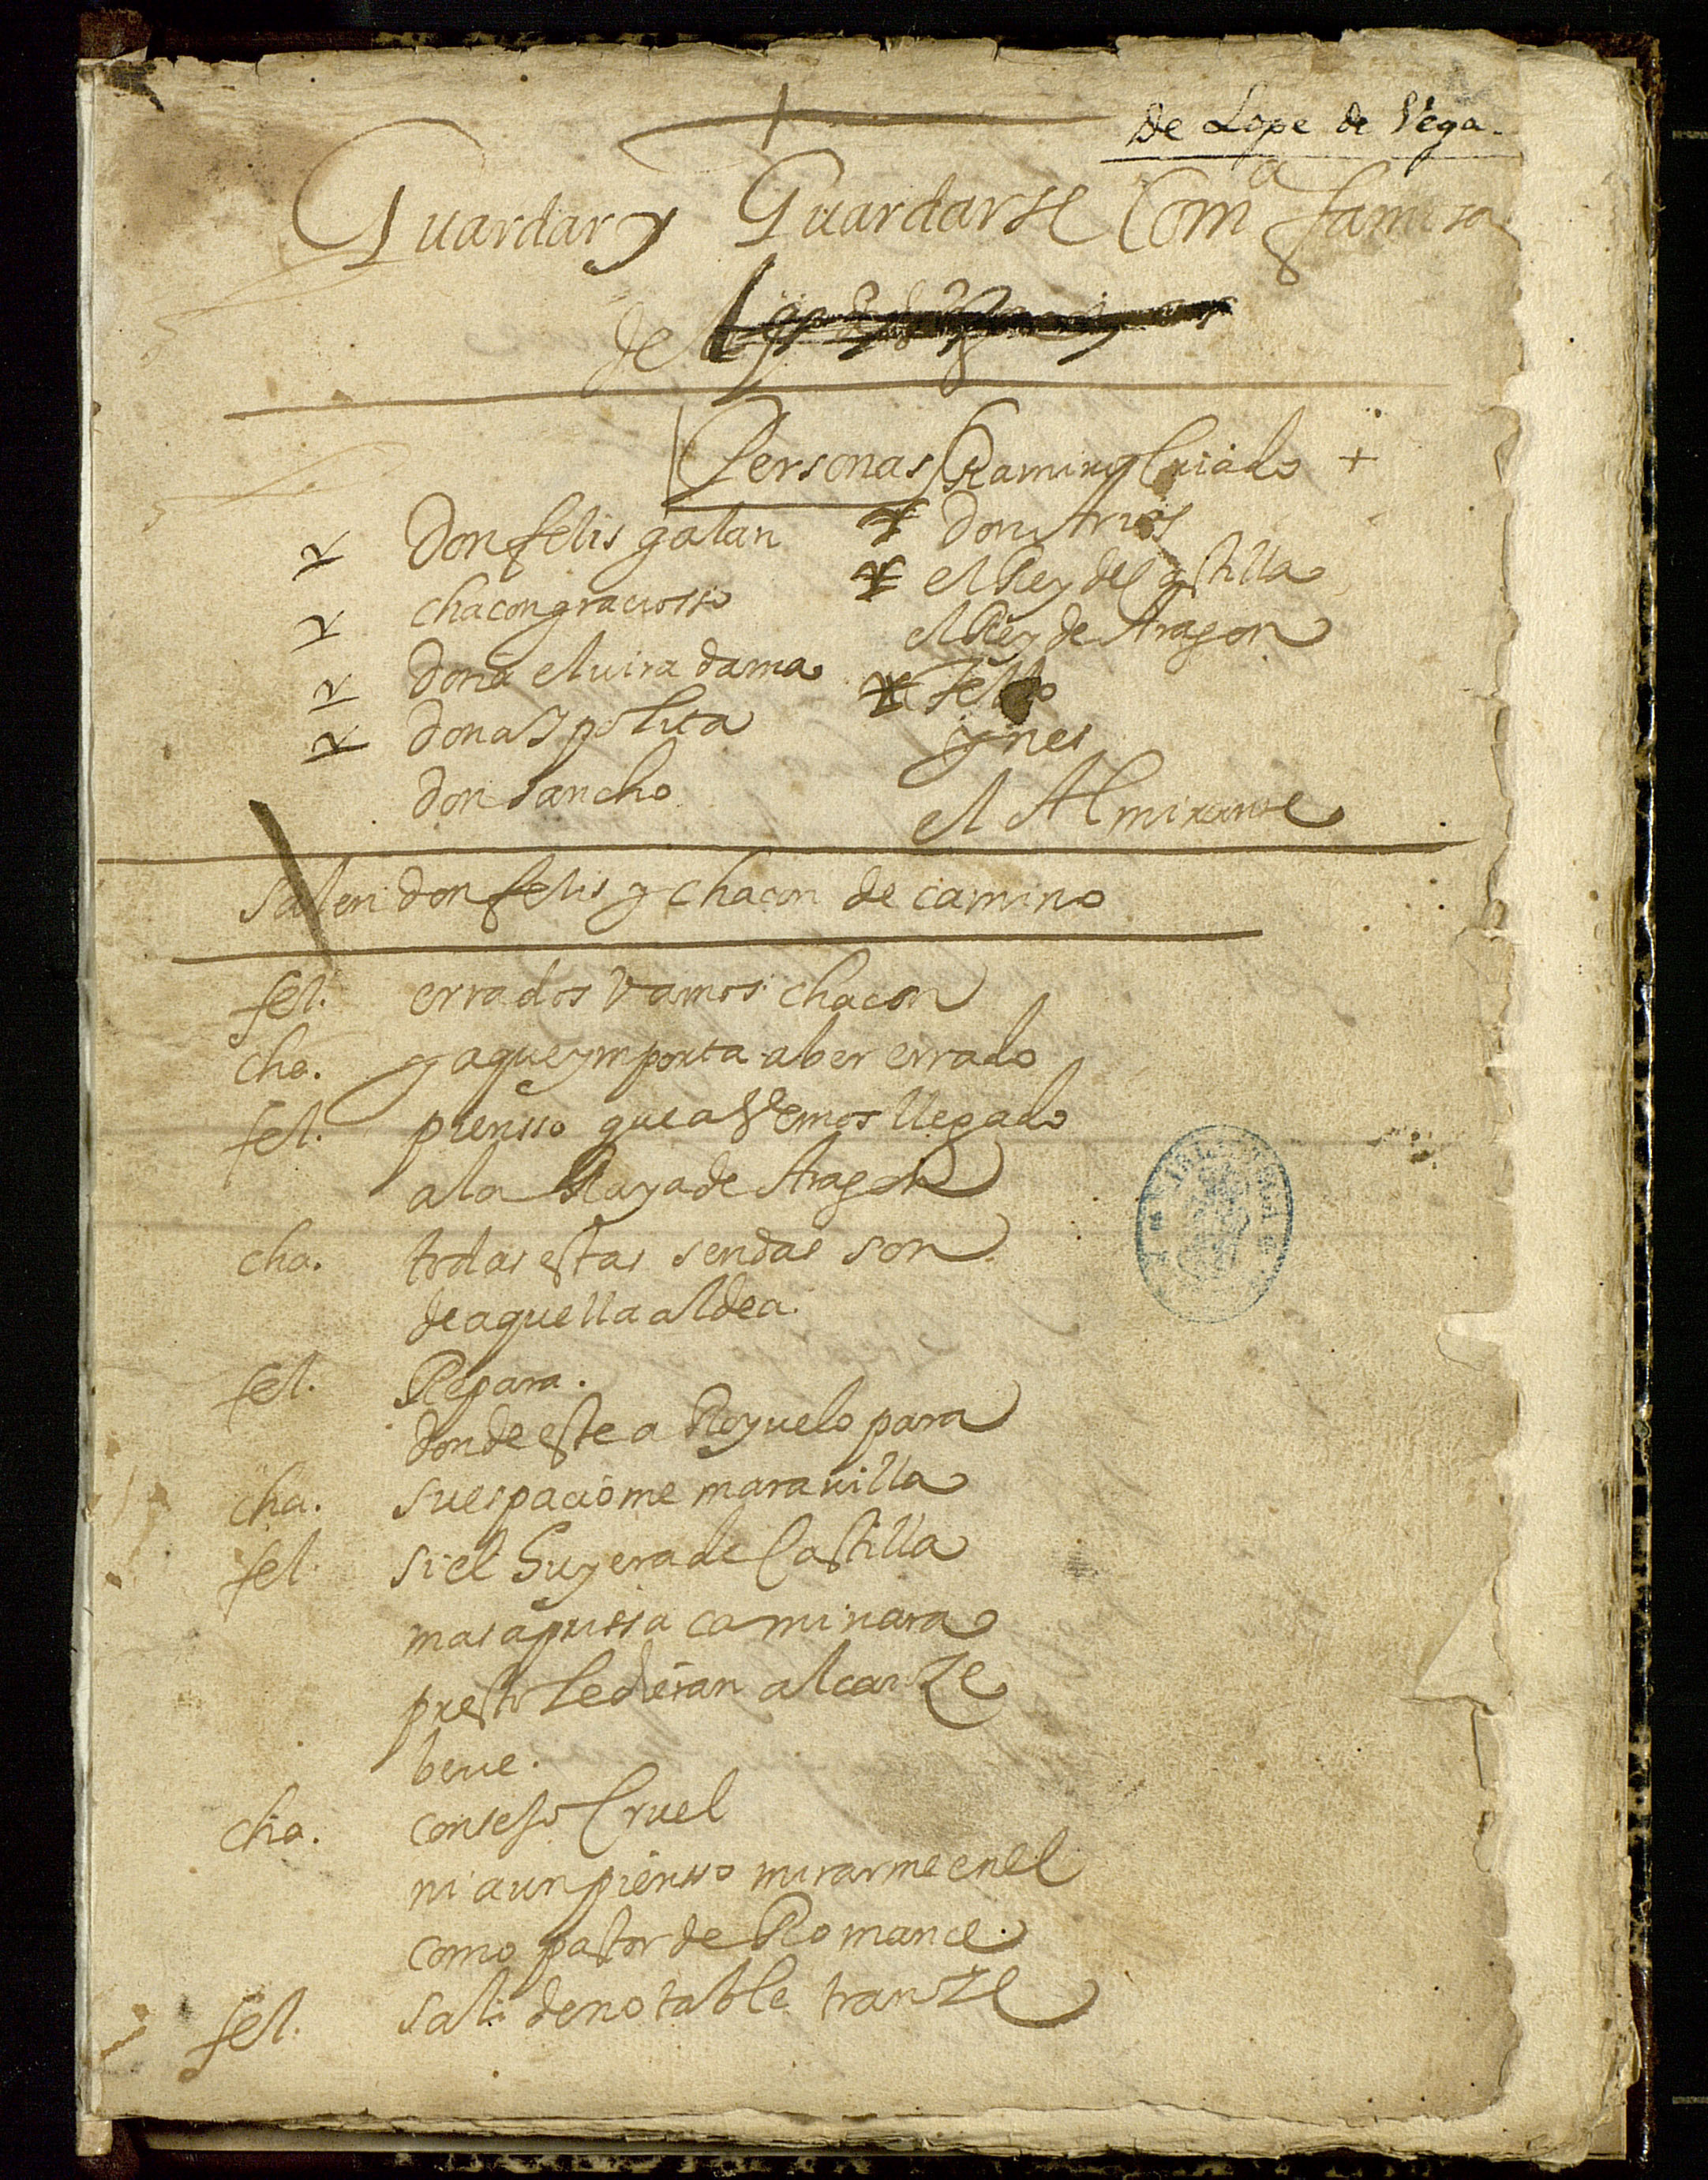 De Lope de Vega.
Guardar y Guardarse Com^a famosa
de
Personas Ramiro Criado +
Don felis galan
chacon graciosso
dona elvira dama
dona ypolita
don sancho
don Arias
el Rey de Castilla
el Rey de Aragon
Tello
ynes
el Almirante
Salen don felis y chacon de camino
fel. errados vamos chacon
cha. y a que ymporta aber errado
fel. piensso que abemos llegado
a la Raya de Aragon
cha. todas estas sendas son
de aquella aldea.
fel. Repara.
donde este aRoyuelo para
cha. su espacio me maravilla
fel. si el Huyera de Castilla
mas aprissa caminara
presto le dieran alcanze
beve.
cha. consejo Cruel
ni aun piensso mirarme en el
como pastor de Romance.
fel. sali de notable tranze